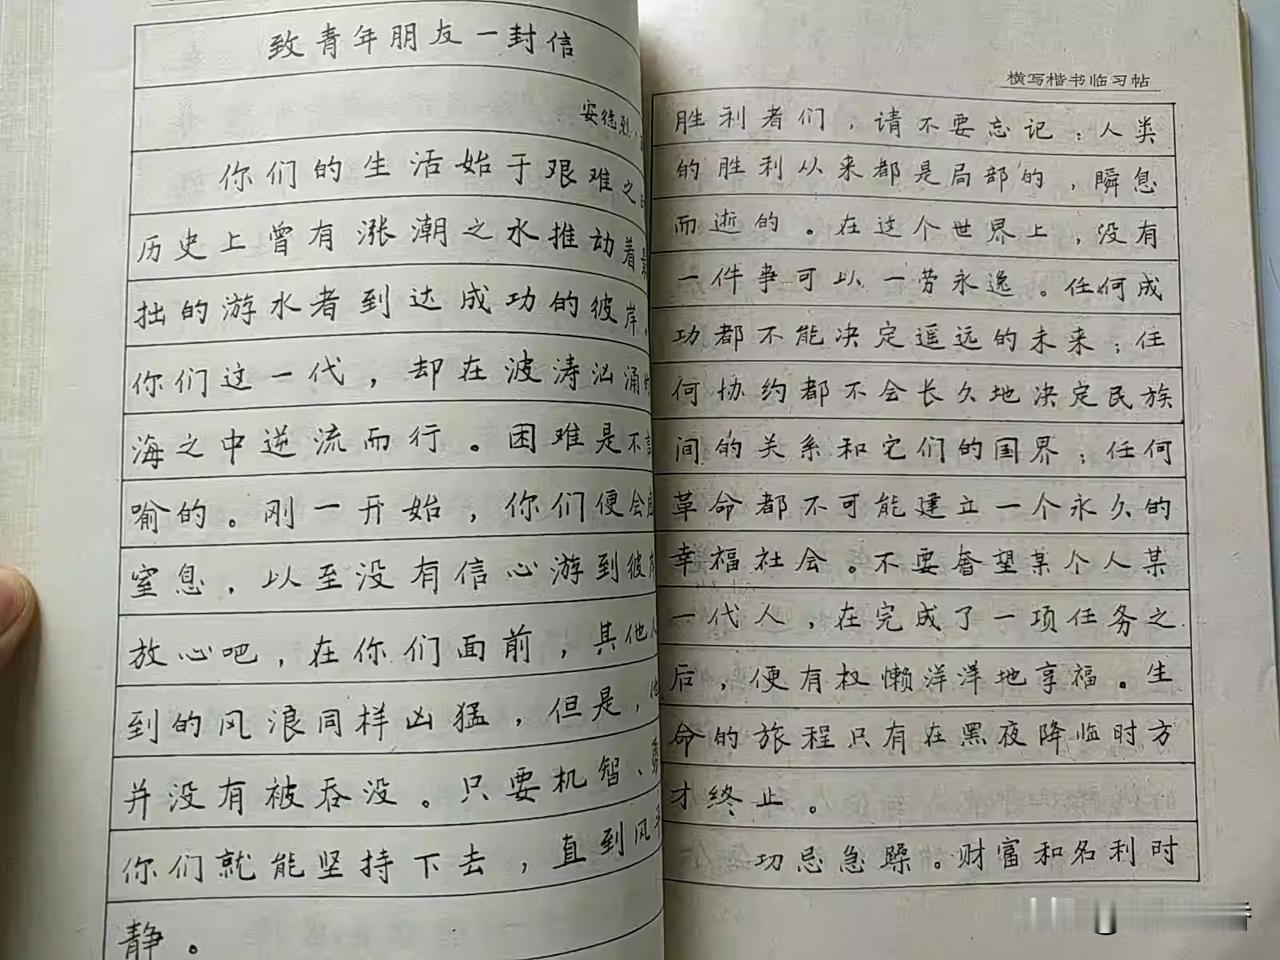 致青年朋友一封信
安德烈·
你们的生活始于艰难之
历史上曾有涨潮之水推动着
拙的游水者到达成功的彼岸，
你们这一代，却在波涛汹涌的
海之中逆流而行。困难是不
喻的。刚一开始，你们便会感
窒息，以至没有信心游到彼岸
放心吧，在你们面前，其他人
到的风浪同样凶猛，但是，他
并没有被吞没。只要机智、勇
你们就能坚持下去，直到风平
静。
横写楷书临习帖
胜利者们，请不要忘记：人类
的胜利从来都是局部的，瞬息
而逝的。在这个世界上，没有
一件事可以一劳永逸。任何成
功都不能决定遥远的未来；任
何协约都不会长久地决定民族
间的关系和它们的国界；任何
革命都不可能建立一个永久的
幸福社会。不要奢望某个人某
一代人，在完成了一项任务之
后，便有权懒洋洋地享福。生
命的旅程只有在黑夜降临时方
才终止。
功忌急躁。财富和名利时